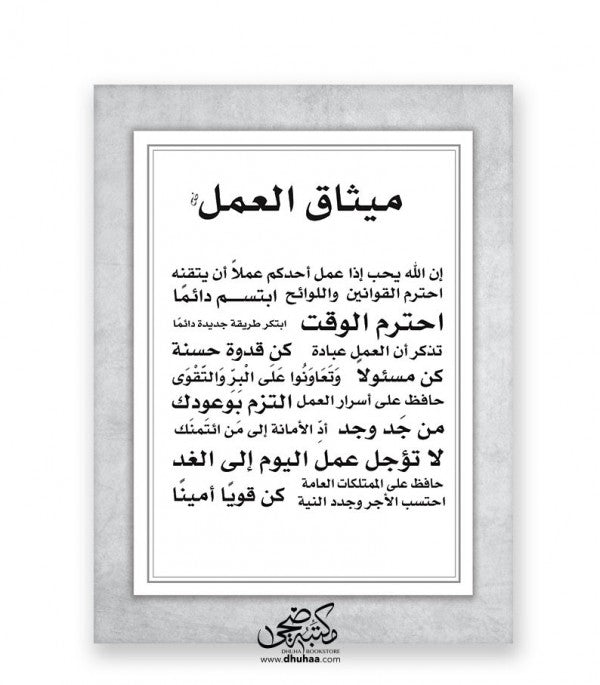 ميثاق العمل
إن الله يحب إذا عمل أحدكم عملاً أن يتقنه
احترم القوانين واللوائح ابتسم دائمًا
احترم الوقت ابتكر طريقة جديدة دائمًا
تذكر أن العمل عبادة كن قدوة حسنة
كن مسئولاً وَتَعَاوَنُوا عَلَى الْبِرِّ وَالتَّقْوَى
حافظ على أسرار العمل التزم بوعودك
من جَد وجد أدِ الأمانة إلى مَن ائتَمنَك
لا تؤجل عمل اليوم إلى الغد
حافظ على الممتلكات العامة
احتسب الأجر وجدد النية كن قويًا أمينًا
مكتبة ضحى
DHUHA BOOKSTORE
www.dhuhaa.com